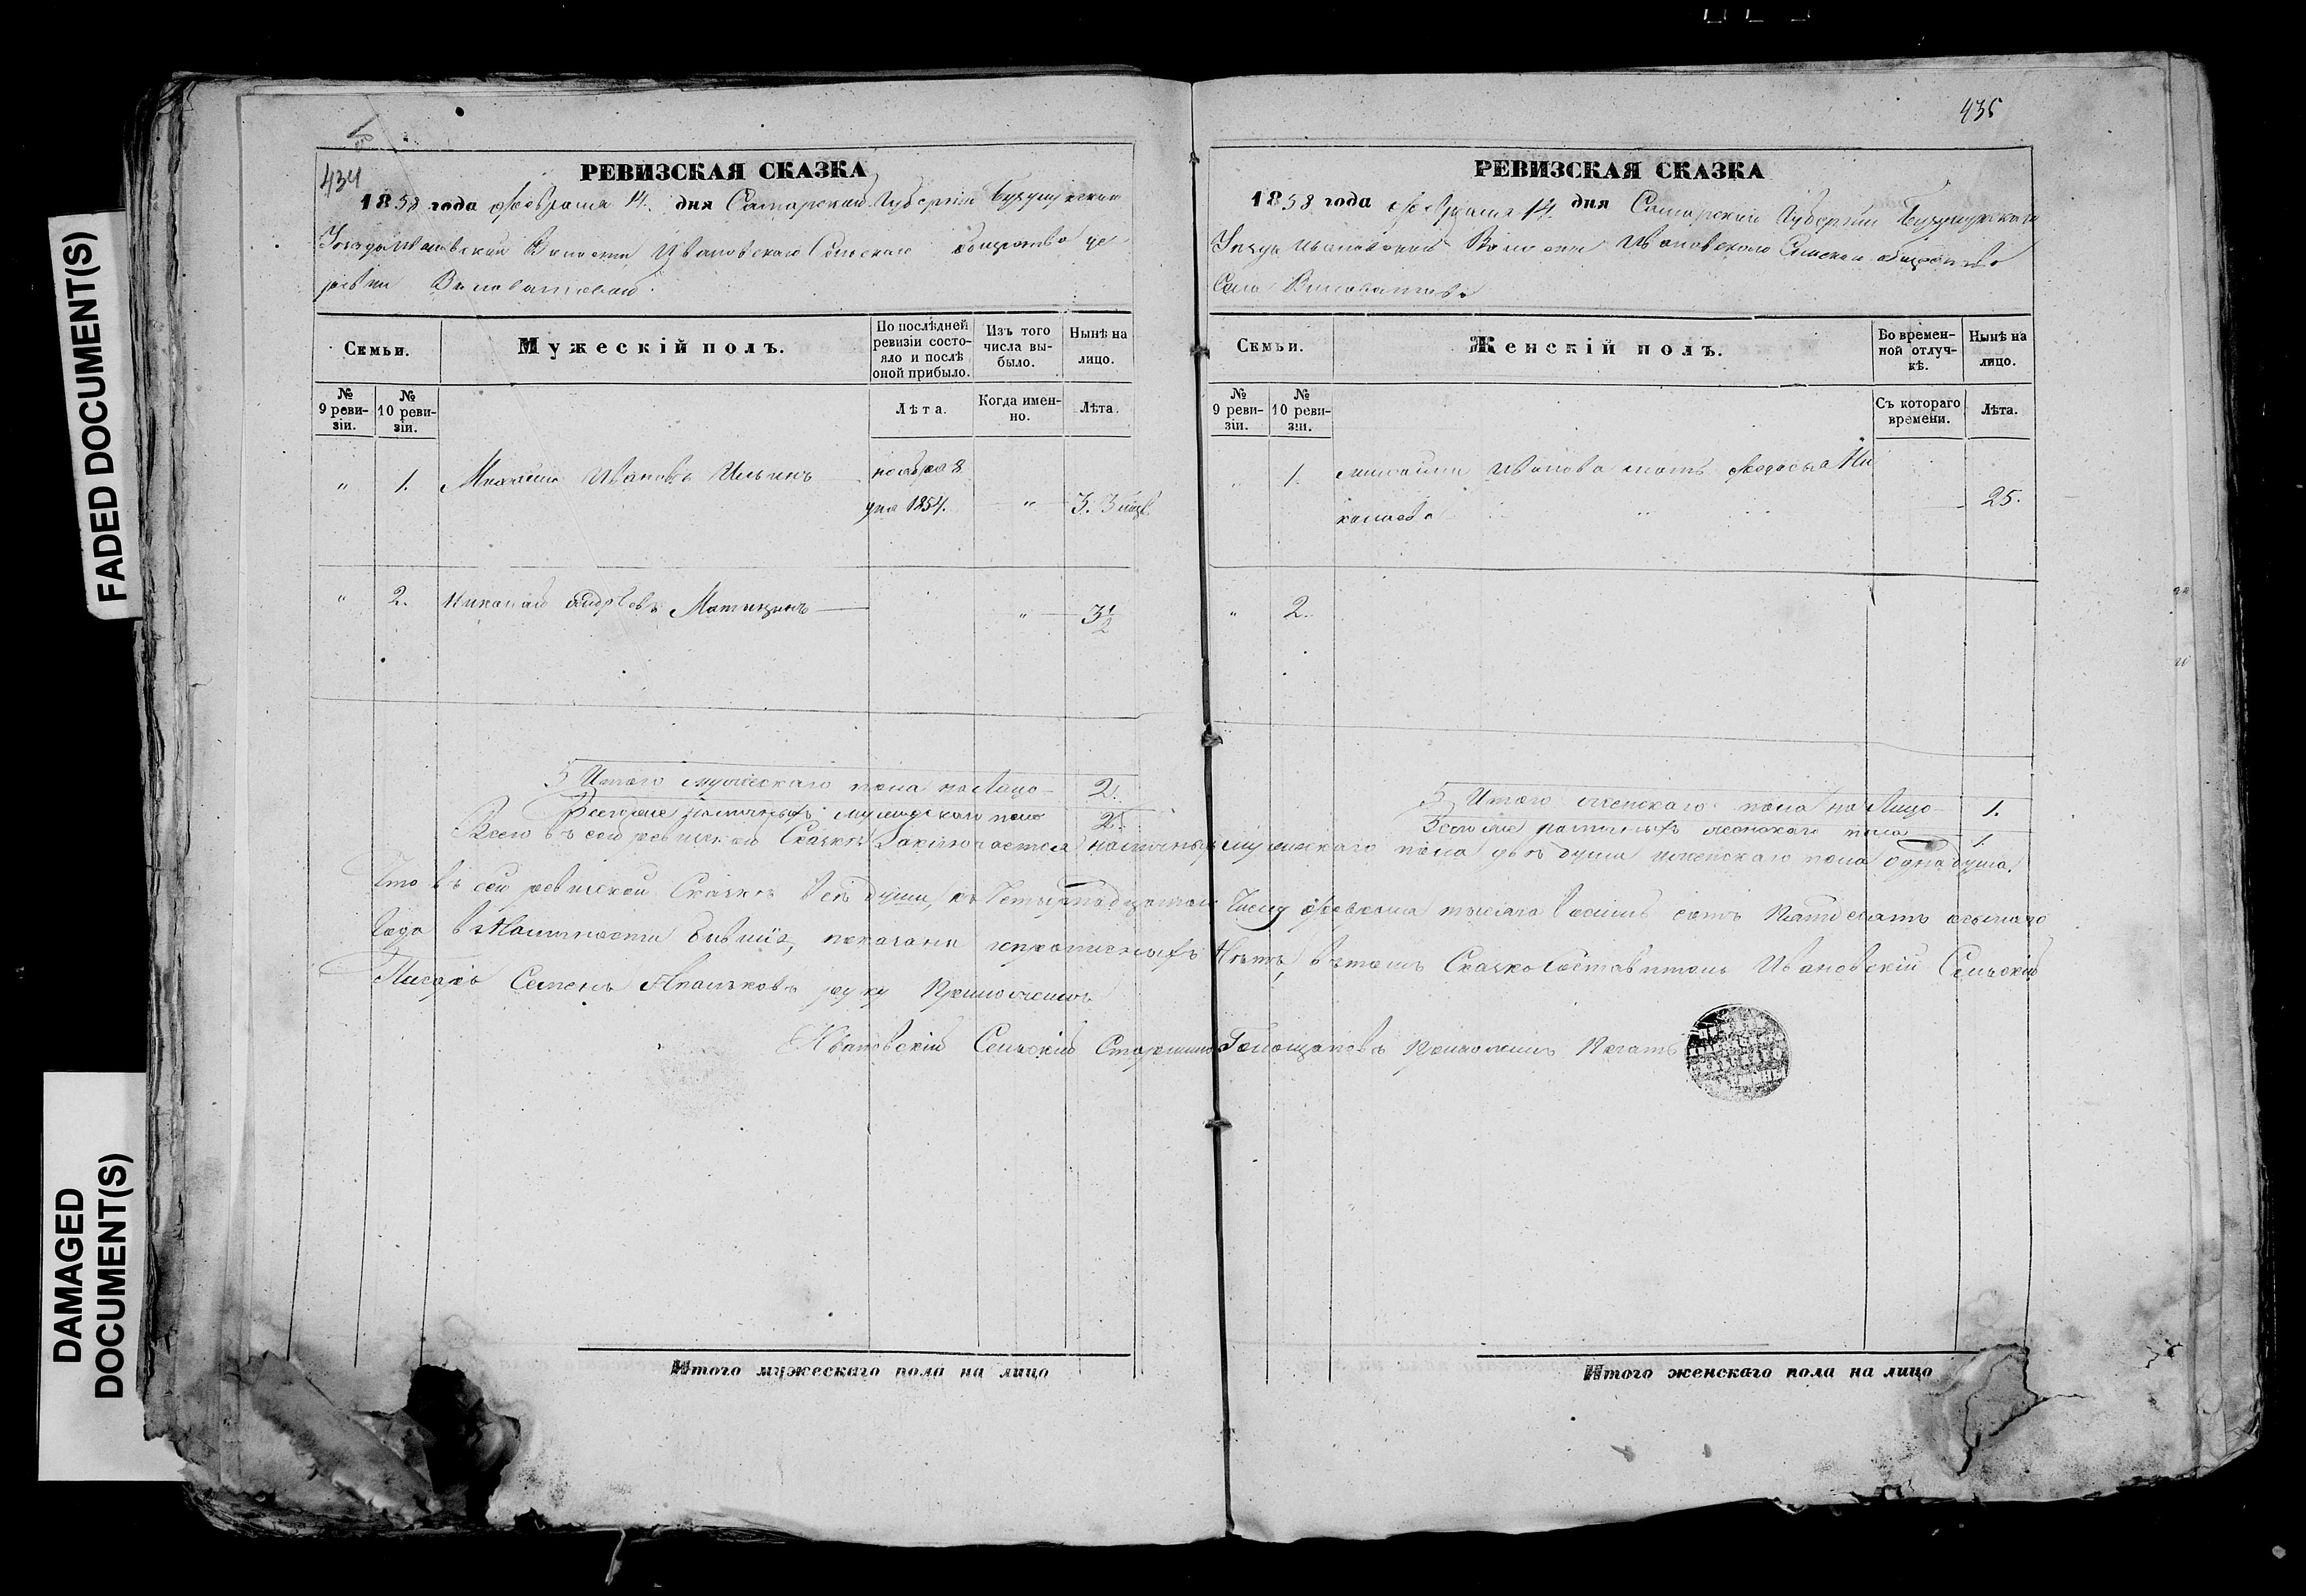 FADED DOCUMENT(S)
DAMAGED
DOCUMENT(S)
434
РЕВИЗСКАЯ СКАЗКА
1858 года февраля 14. дня Самарской Губерніи Бузулукскаго
Уезда Ивановской Волости Ивановскаго Сельскаго общества де-
ревни
Семьи.
Мужескій полъ.
По послѣдней
ревизіи состо-
яло и послѣ
оной прибыло.
Изъ того
числа вы-
было.
Нынѣ на
лицо.
№
9 реви-
зіи.
№
10 реви-
зіи.
Лѣта.
Когда имен-
но.
Лѣта.
" 1. Михаилъ Ивановъ Ильинъ
ноября 8
дня 1854. " 3. 3 мѣс.
" 2. Николай Андреевъ " 3½
5 Итого мужескаго пола на Лицо 2.
Всего же наличныхъ мужескаго пола 2.
435
РЕВИЗСКАЯ СКАЗКА
1858 года февраля 14 дня Самарской Губерніи Бузулукскаго
Уезда Ивановской Волости Ивановскаго Сельскаго общества
Села
Семьи.
Женскій полъ.
Во времен-
ной отлуч-
кѣ.
Нынѣ на
лицо.
№
9 реви-
зіи.
№
10 реви-
зіи.
Съ котораго
времени.
Лѣта.
" 1. Михайлы Иванова мать Федосья Ни
колаева 25.
" 2.
5 Итого женскаго пола на Лицо 1.
Всего же наличныхъ женскаго пола 1.
Всего въ сей ревизской Сказкѣ Заключается наличныхъ мужескаго пола двѣ души женскаго пола одна душа.
Что въ сей ревизской Сказкѣ всѣ души, къ Четырнадцатому Числу февраля тысяча восемь сотъ Пятдесятъ осьмаго
Года въ Наличности бывшіе, показаны и прописныхъ Нѣтъ, въ томъ Сказкосоставитель Ивановскій Сельскій
Писарь Семенъ руку Приложилъ
Ивановскій Сельскій Старшина приложилъ Печать
Итого мужескаго пола на лицо
Итого женскаго пола на лицо